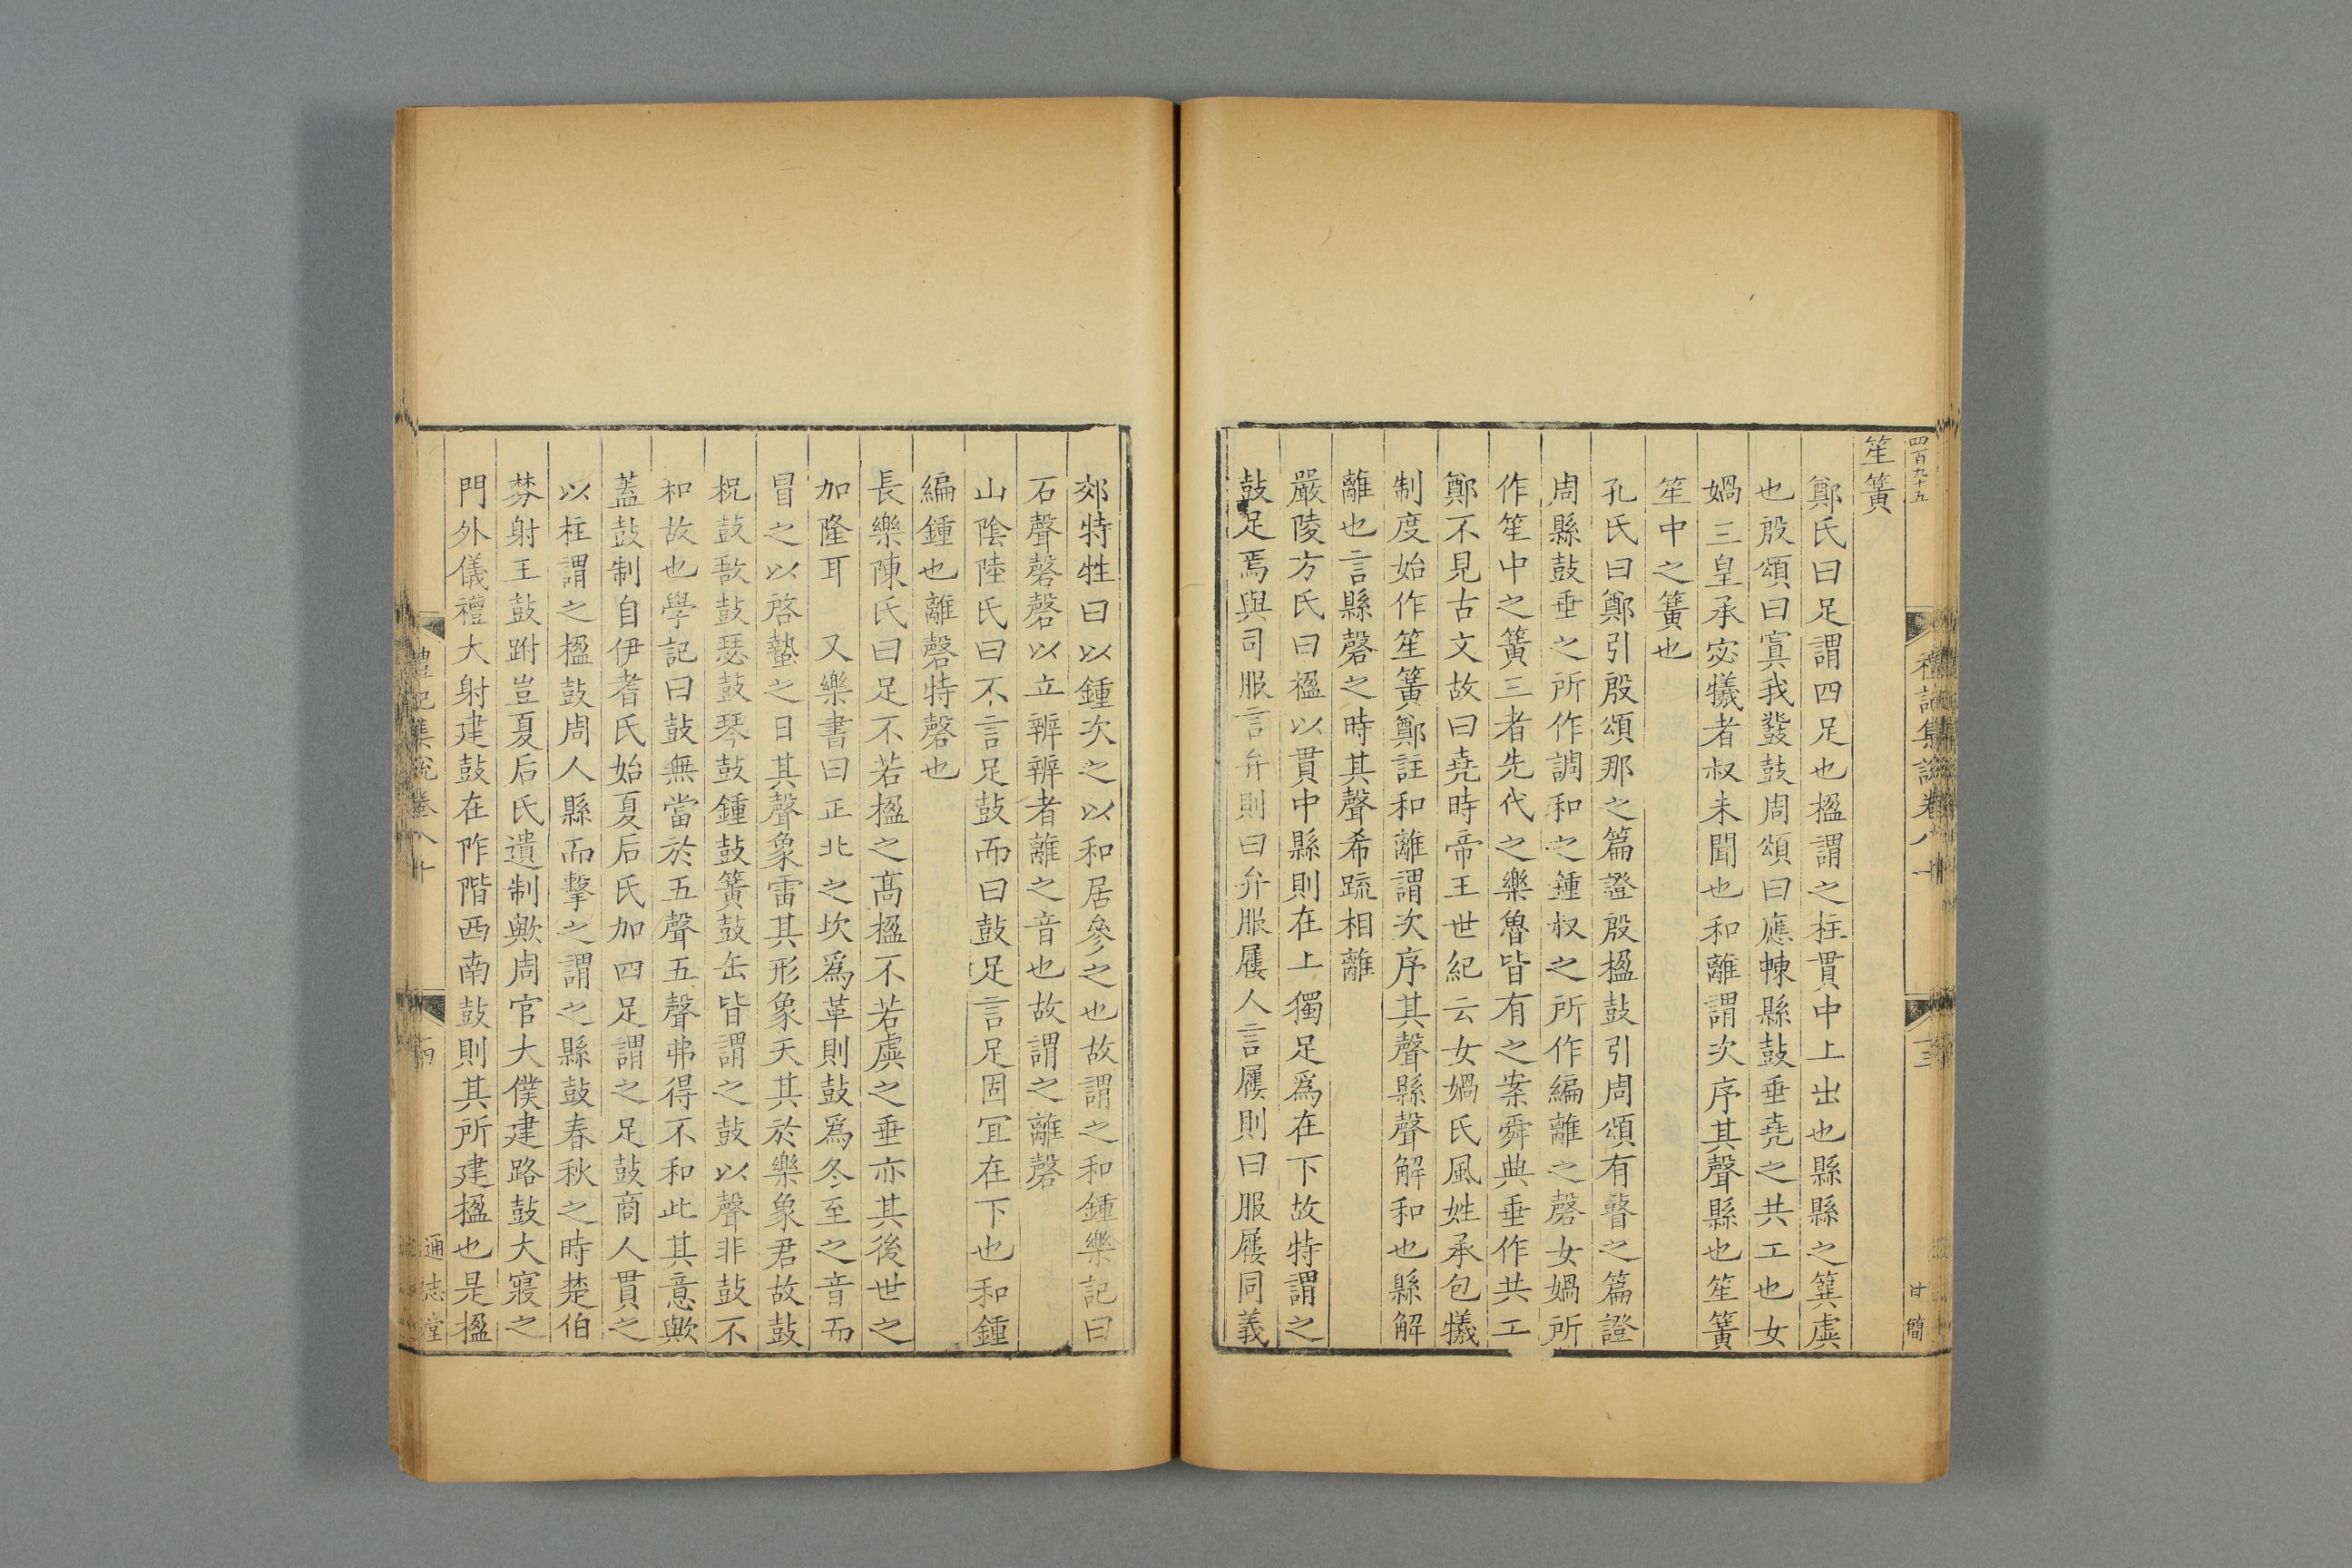 四百九十五
禮記集說卷八十
十三
甘簡
笙簧
鄭氏曰足謂四足也楹謂之柱貫中上出也縣縣之簨虡
也殷頌曰寘我鼗鼓周頌曰應朄縣鼓垂堯之共工也女
媧三皇承宓犧者叔未聞也和離謂次序其聲縣也笙簧
笙中之簧也
孔氏曰鄭引殷頌那之篇證殷楹鼓引周頌有瞽之篇證
周縣鼓垂之所作調和之鍾叔之所作編離之磬女媧所
作笙中之簧三者先代之樂魯皆有之案舜典垂作共工
鄭不見古文故曰堯時帝王世紀云女媧氏風姓承包犧
制度始作笙簧鄭註和離謂次序其聲縣聲解和也縣解
離也言縣磬之時其聲希疏相離
嚴陵方氏曰楹以貫中縣則在上獨足爲在下故特謂之
鼓足焉與司服言弁則曰弁服屨人言屨則曰服屨同義
郊特牲曰以鍾次之以和居參之也故謂之和鍾樂記曰
石聲磬磬以立辨辨者離之音也故謂之離磬
山陰陸氏曰不言足鼓而曰鼓足言足固宜在下也和鍾
編鍾也離磬特磬也
長樂陳氏曰足不若楹之高楹不若虡之垂亦其後世之
加隆耳　又樂書曰正北之坎爲革則鼓爲冬至之音而
冒之以啓蟄之日其聲象雷其形象天其於樂象君故鼓
柷鼓敔鼓瑟鼓琴鼓鍾鼓簧鼓缶皆謂之鼓以聲非鼓不
和故也學記曰鼓無當於五聲五聲弗得不和此其意歟
蓋鼓制自伊耆氏始夏后氏加四足謂之足鼓商人貫之
以柱謂之楹鼓周人縣而擊之謂之縣鼓春秋之時楚伯
棼射王鼓跗豈夏后氏遺制歟周官大僕建路鼓大寢之
門外儀禮大射建鼓在阼階西南鼓則其所建楹也是楹
禮記集說卷八十
十四
通志堂